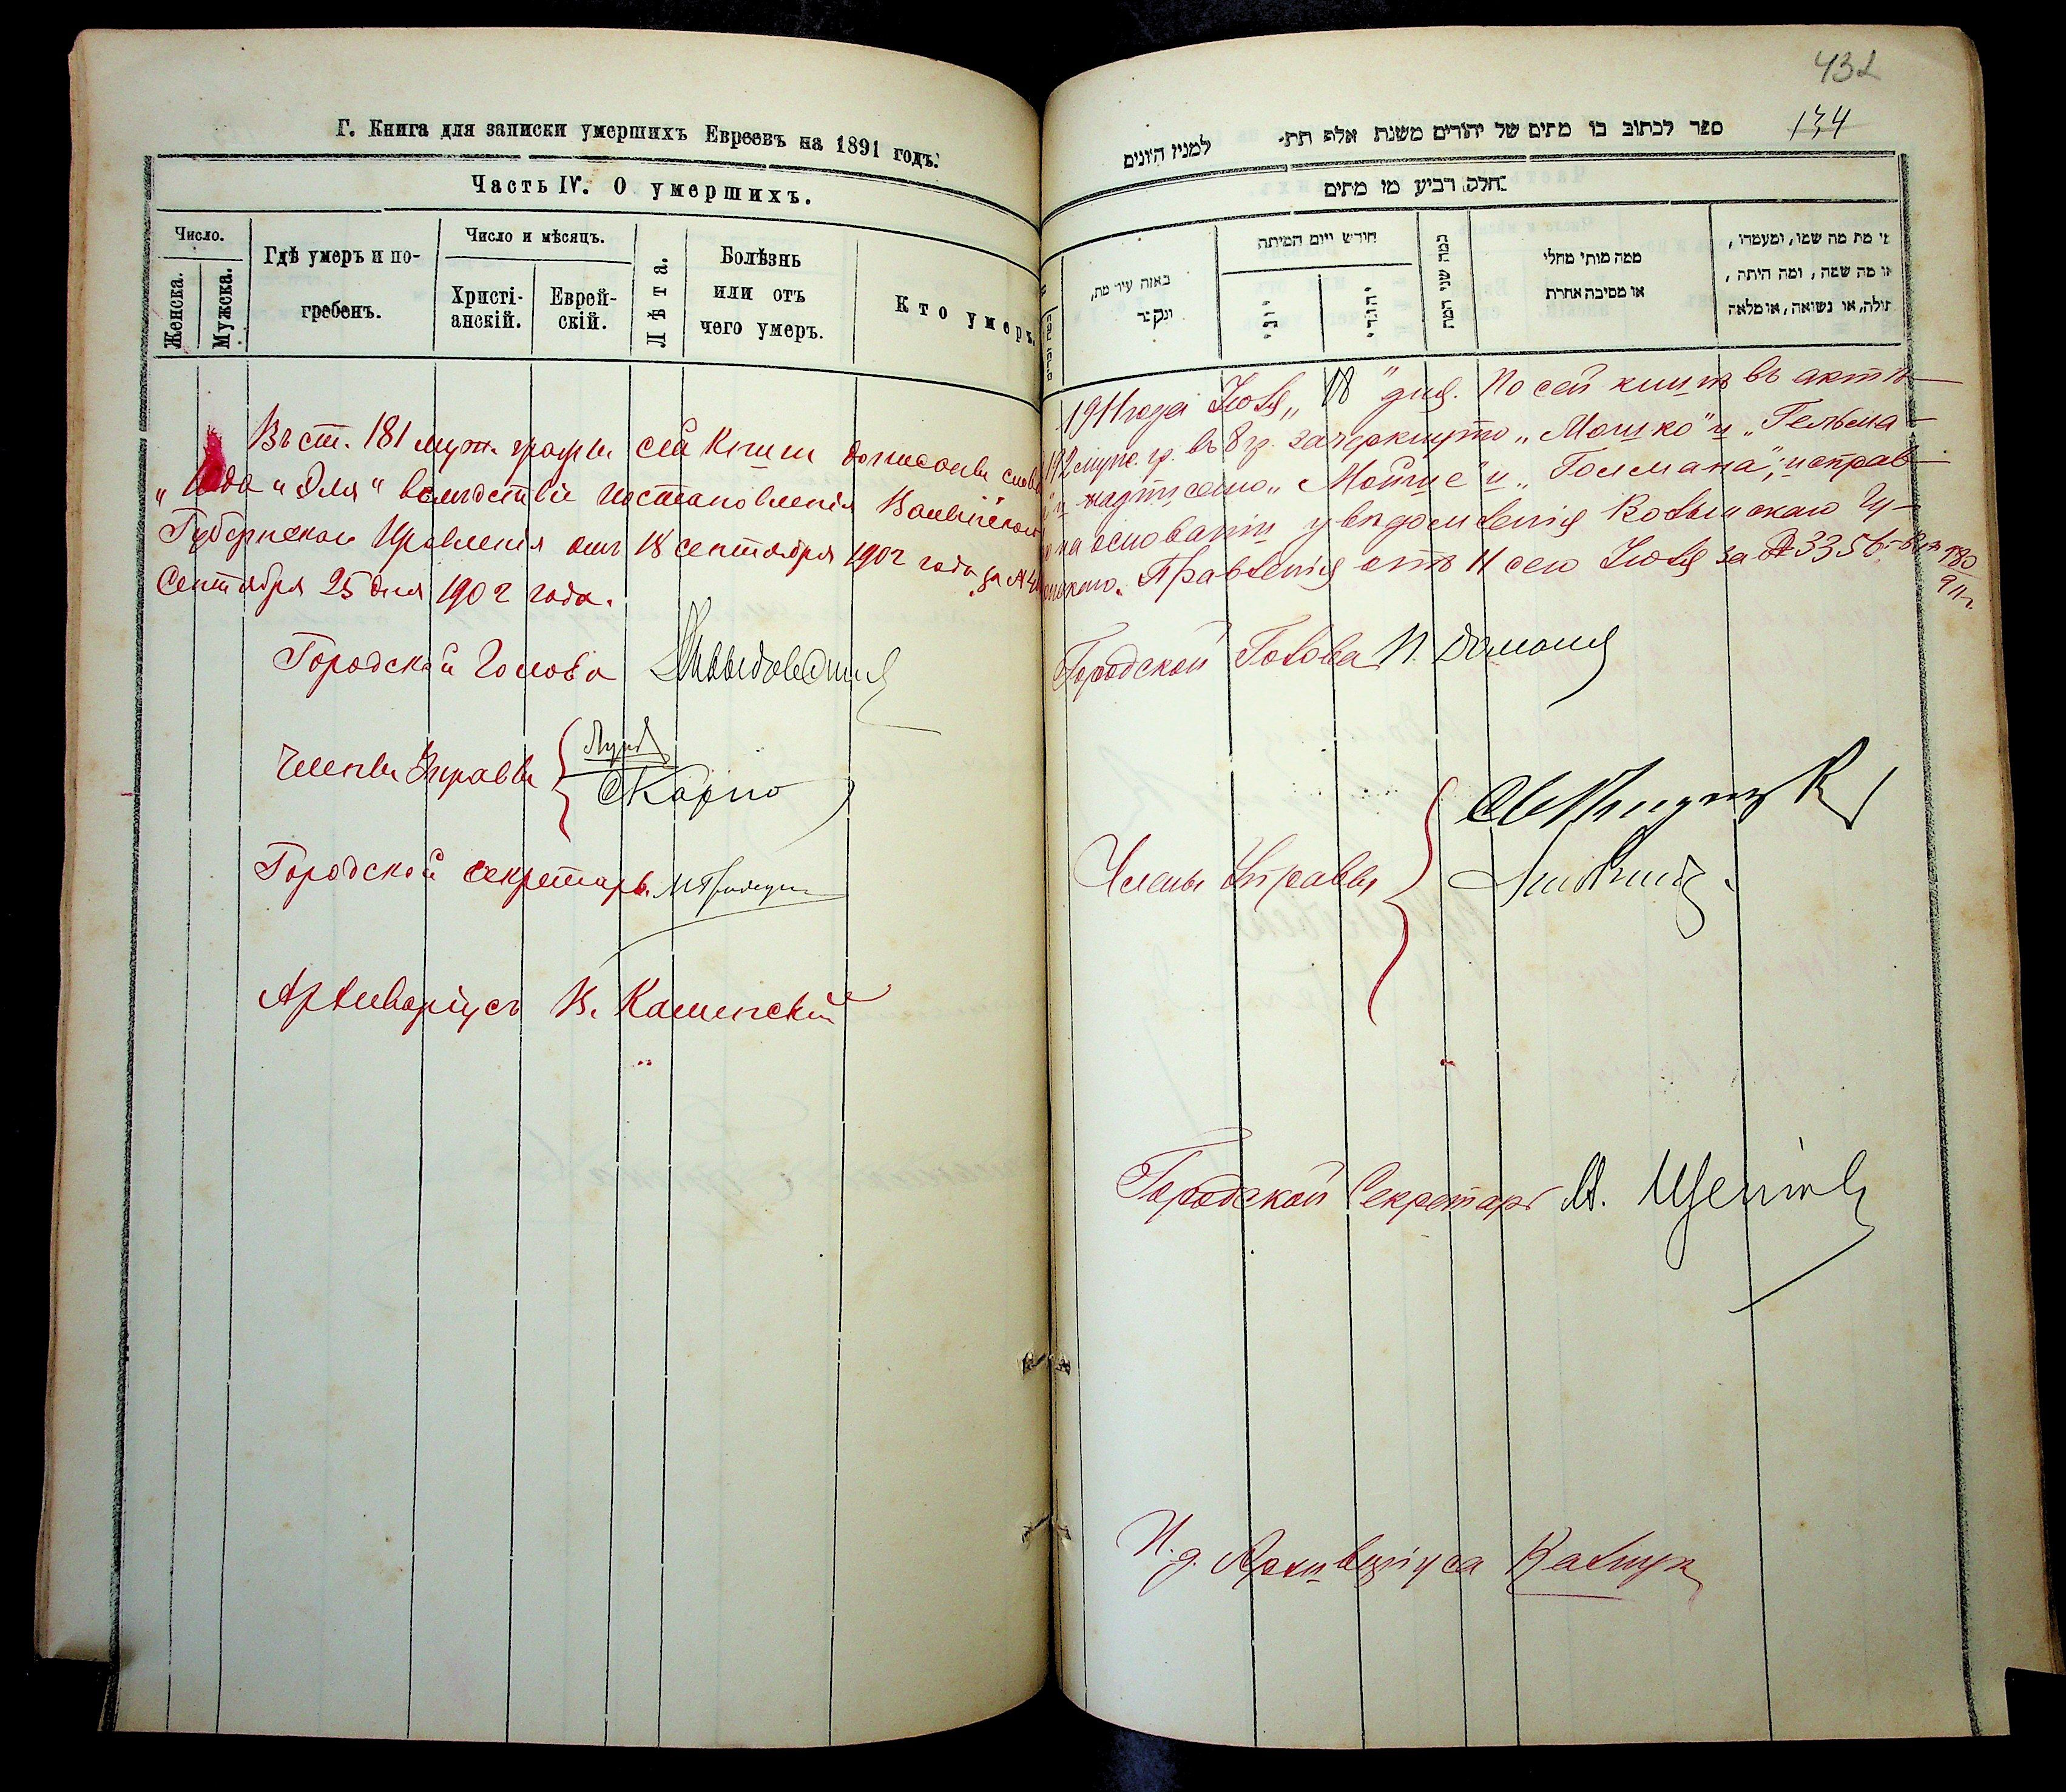 Г. Книга для записки умершихъ Евреевъ на 1891 годъ.
Часть IV. О умершихъ.
Число.
Женска.
Мужска.
Гдѣ умеръ и по-
гребенъ.
Число и мѣсяцъ.
Христі-
анскій.
Еврей-
скій.
Лѣта.
Болѣзнь
или отъ
чего умеръ.
Кто умеръ.
Въ ст. 181 муж. графы сей книги дописаны слова
"и "Эля" вслѣдствіе постановленія Волынскаго
Губернскаго Правленія отъ 18 сентября 1902 года за №
Сентября 25 дня 1902 года.
Городской Голова
Члены Управы
Карпо
Городской секретарь
Архиваріусъ В. Каменскій
432
134
ספר לכתוב בו מתים של יהודים משנת אלף תת׳ למנין היונים
חלק רביע מו מתים
באזה עיר מת,
ונקבר
חודש ויום המיתה
יוני
יהודי
כמה שני המת
ממה מותי מחלי
או מסיבה אחרת
מי מת מה שמו, ומעמדו,
או מה שמה, ומה היתה,
תולה, או נשואה, או מלאה
1911 года Іюля "18" дня. По сей книгѣ въ актѣ
192 муж. гр. въ 8 гр. зачеркнуто "Мошко" и "Гельма-
и надписано "Мойше" и "Голмана"; исправ-
на основаніи увѣдомленія Волынскаго Гу-
Правленія отъ 11 сего Іюля за № 3356
180
911 г.
Городской Голова
Члены Управы
Городской Секретарь
И. д. Архиваріуса